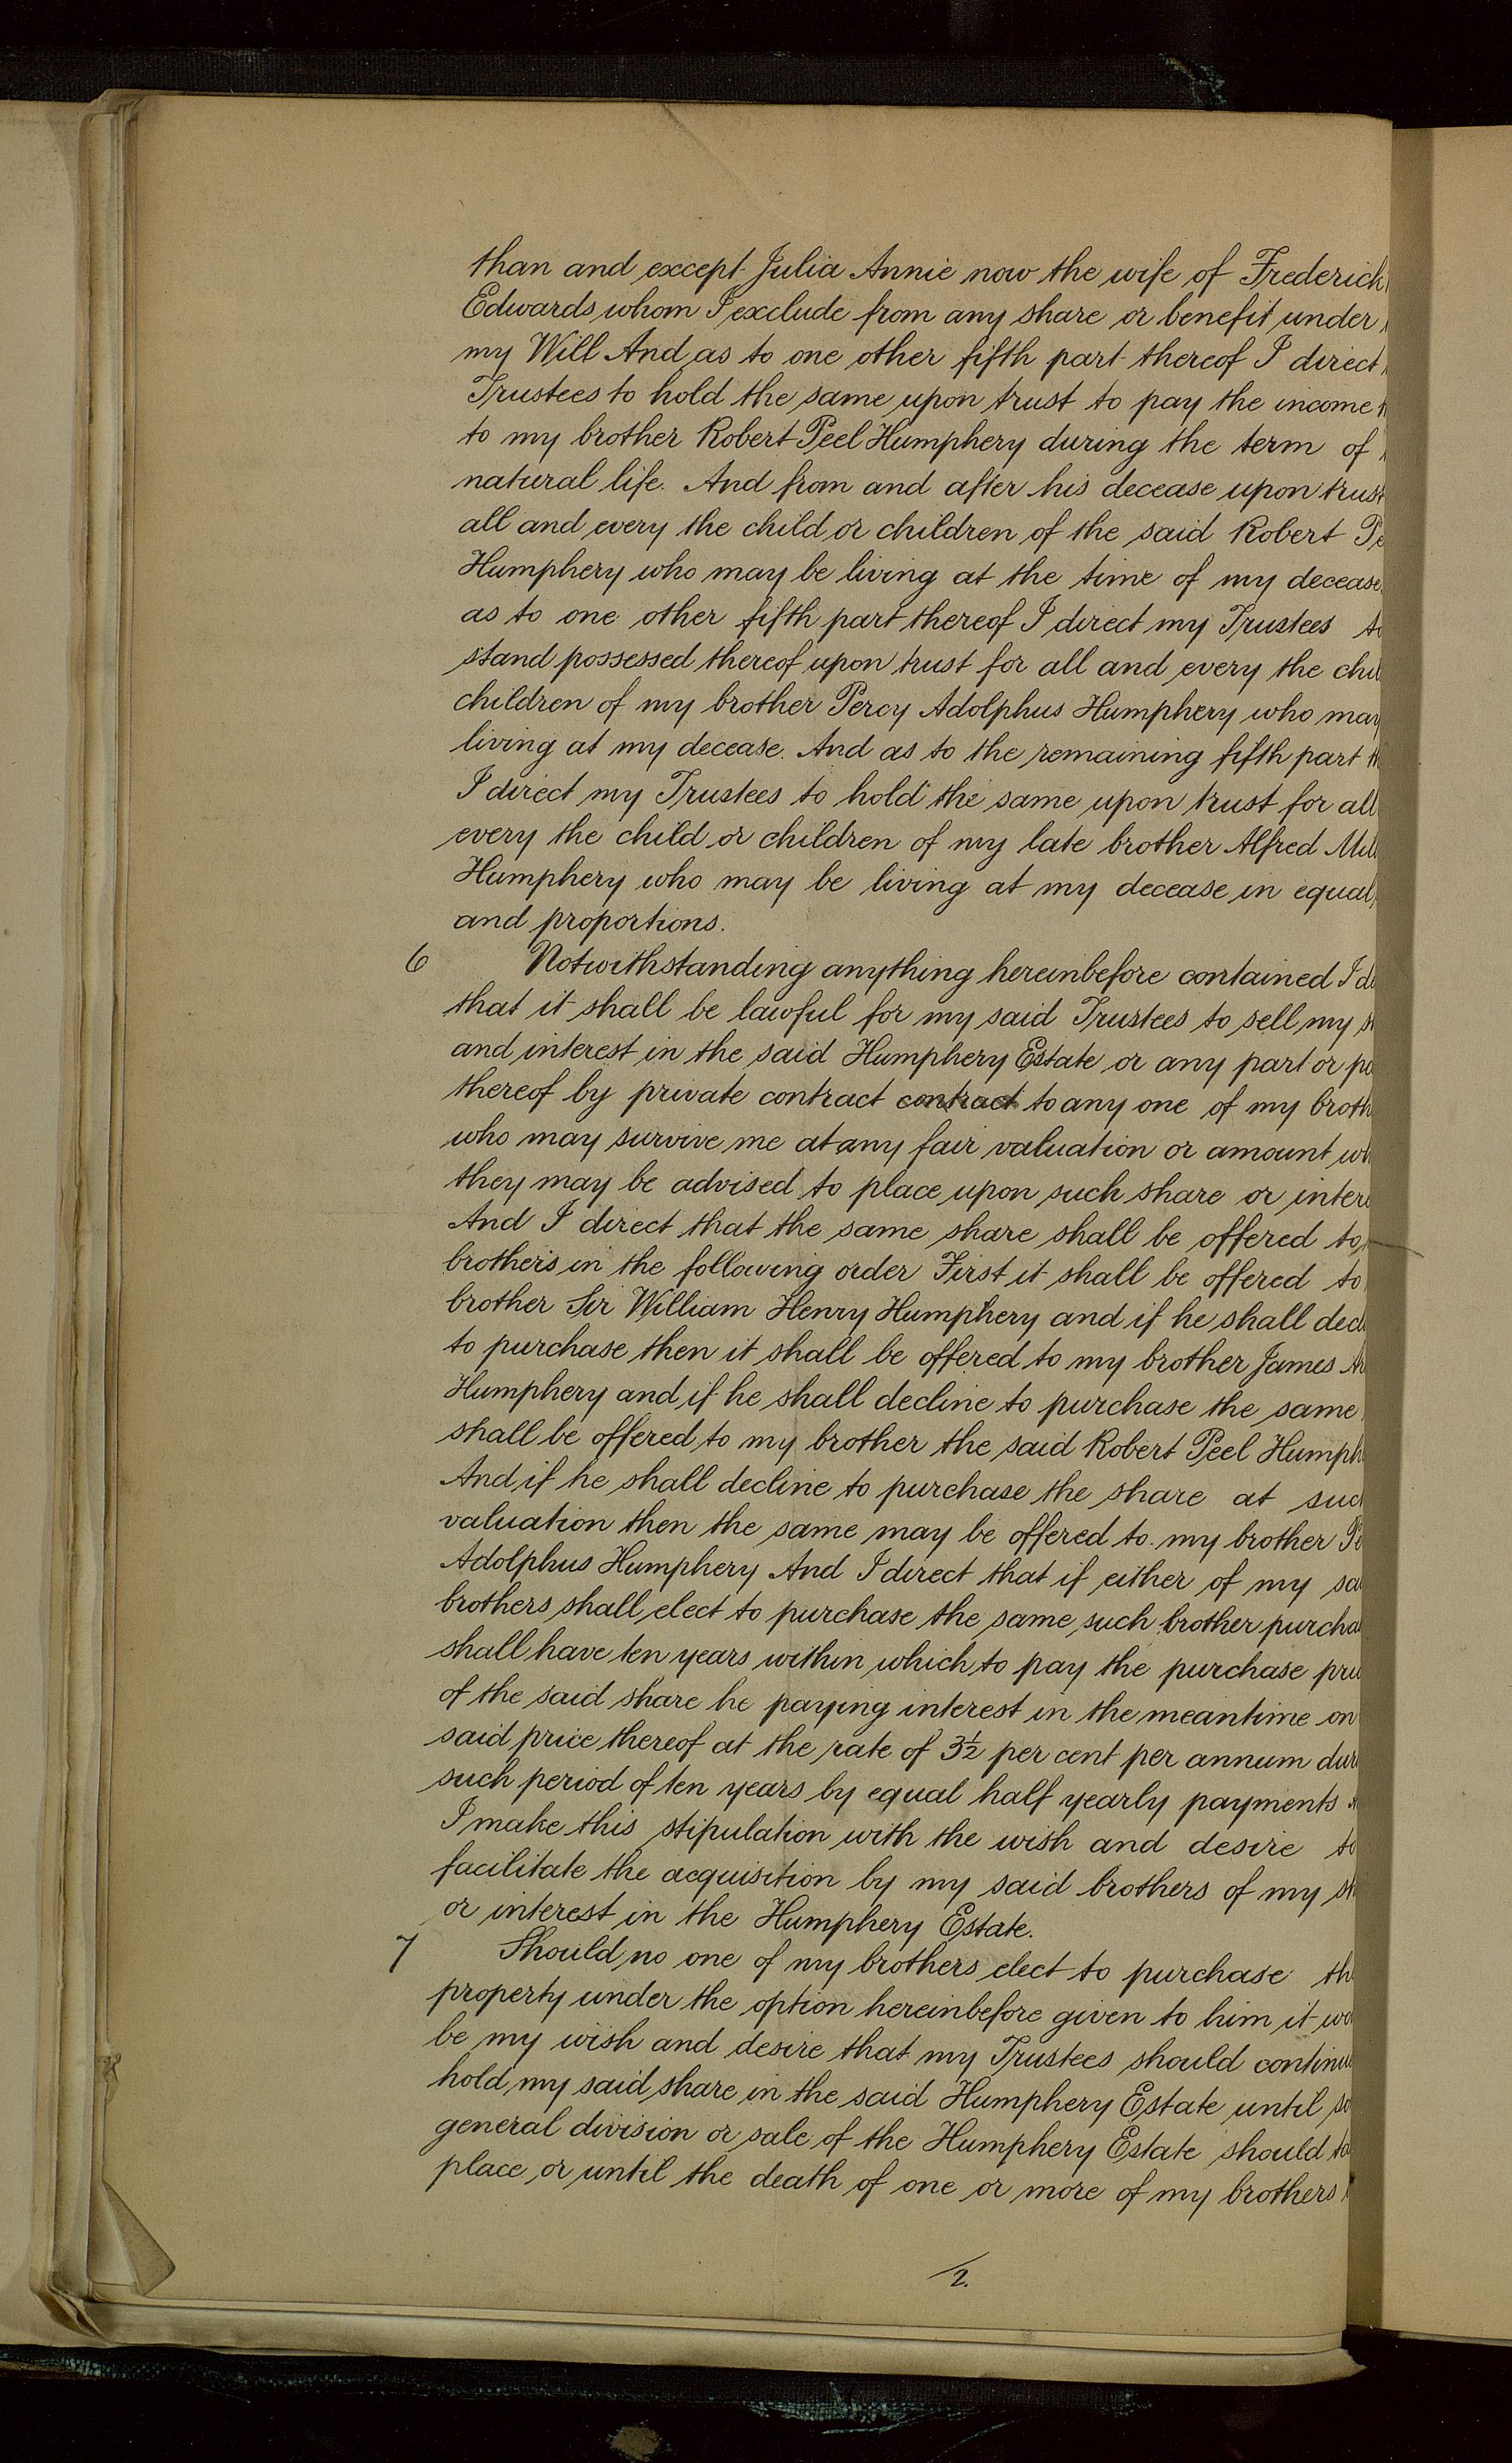 than and except Julia Annie now the wife of Frederick
Edwards whom I exclude from any share or benefit under
my Will And as to one other fifth part thereof I direct
Trustees to hold the same upon trust to pay the income
to my brother Robert Peel Humphery during the term of
natural life. And from and after his decease upon trust
all and every the child or children of the said Robert Pe
Humphery who may be living at the time of my decease
as to one other fifth part thereof I direct my Trustees to
stand possessed thereof upon trust for all and every the chil
children of my brother Percy Adolphus Humphery who may
living at my decease. And as to the remaining fifth part th
I direct my Trustees to hold the same upon trust for all
every the child or children of my late brother Alfred Mil
Humphery who may be living at my decease in equal
and proportions.
6 Notwithstanding anything hereinbefore contained I d
that it shall be lawful for my said Trustees to sell my s
and interest in the said Humphery Estate or any part or po
thereof by private contract contract to any one of my broth
who may survive me at any fair valuation or amount wh
they may be advised to place upon such share or inter
And I direct that the same share shall be offered to
brothers in the following order First it shall be offered to
brother Sir William Henry Humphery and if he shall decl
to purchase then it shall be offered to my brother James
Humphery and if he shall decline to purchase the same
shall be offered to my brother the said Robert Peel Humph
And if he shall decline to purchase the share at such
valuation then the same may be offered to my brother Pe
Adolphus Humphery And I direct that if either of my sa
brothers shall elect to purchase the same such brother purcha
shall have ten years within which to pay the purchase pri
of the said share he paying interest in the meantime on
said price thereof at the rate of 3½ per cent per annum dur
such period of ten years by equal half yearly payments
I make this stipulation with the wish and desire to
facilitate the acquisition by my said brothers of my sh
or interest in the Humphery Estate.
7 Should no one of my brothers elect to purchase th
property under the option hereinbefore given to him it wo
be my wish and desire that my Trustees should continu
hold my said share in the said Humphery Estate until so
general division or sale of the Humphery Estate should ta
place or until the death of one or more of my brothers
2.